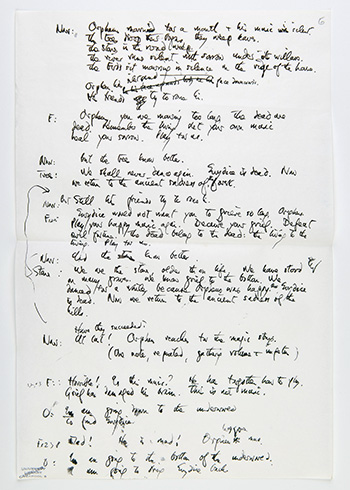 6
Narr: Orpheus mourned for a month & his music was silent.
The trees drop their leaves, they weep leaves.
The stars in the round weep.
The river runs silent with sorrow under its willows.
The birds sit mourning in silence in the ridge of the house.
Orpheus lay face downwards.
His friends try to rouse him.
F: Orpheus, you are mourning too long. The dead are
dead. Remember the living. Let your own music
heal your sorrow. Play for us.
Narr: But the trees knew better.
Trees: We shall never dance again. Eurydice is dead. Now
we return to the ancient sadness of the forest.
Narr: But still his friends try to rouse him.
Fr: Eurydice would not want you to grieve so long, Orpheus.
Play your happy music again. Deceive your grief. Defeat
evil fortune. The dead belong to the dead: the living to the
living. Play for us.
Narr: And the stones knew better.
Stones: We are the stones, older than life. We have stood by
many graves. We know grief to the bottom. We
danced for a while, because Orpheus was happy. Eurydice
is dead. Now we return to the ancient sadness of the
hills.
Have they succeeded?
Narr: At last! Orpheus reaches for the magic strings.
(One note, repeated, gathering volume & impetus)
F: Horrible! Is this music? He has forgotten how to play.
Grief has damaged his brain. This is not music.
O: I'm going down to the underworld
to find Eurydice.
Mad! He is mad! Orpheus is mad.
O: I am going to the bottom of the underworld.
I am going to bring Eurydice back